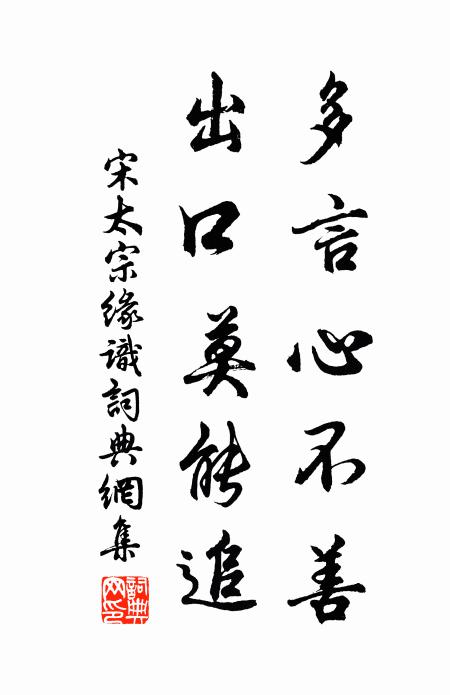 多言心不善
出口莫能追
宋太宗緣識詞典網集
詞典網印